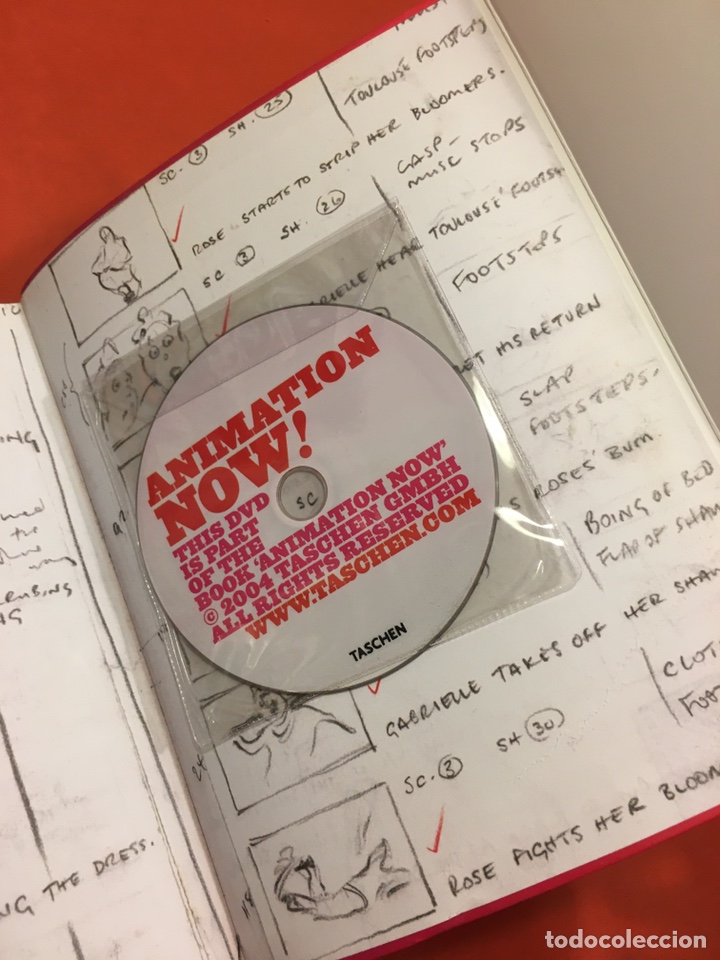 TOULOUSE FOOTSTEPS
SC. 3 SH. 25
ROSE STARTS TO STRIP HER BLOOMERS.
GASP -
MUSIC STOPS
SC 3 SH. 26
HEAR TOULOUSE'
FOOTSTEPS
HIS RETURN
SLAP
FOOTSTEPS.
ROSES' BUM.
BOING OF BED
FLAP OF
GABRIELLE TAKES OFF HER
SC. 3 SH 30
ROSE FIGHTS HER
THE DRESS.
ANIMATION
NOW!
THIS DVD
IS PART
OF THE
BOOK 'ANIMATION NOW'
© 2004 TASCHEN GMBH
ALL RIGHTS RESERVED
WWW.TASCHEN.COM
TASCHEN
SC
todocoleccion